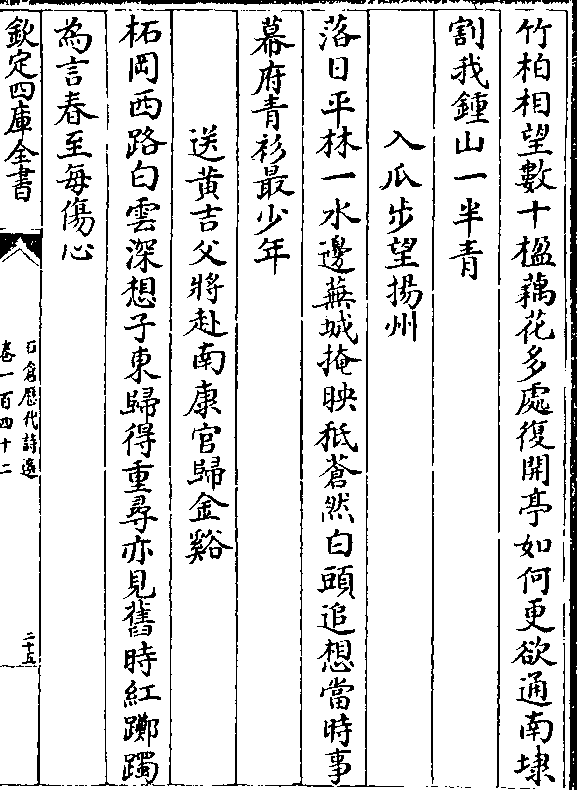 竹柏相望數十楹藕花多處復開亭如何更欲通南埭
割我鍾山一半青
入瓜步望揚州
落日平林一水邊蕪城掩映秖蒼然白頭追想當時事
幕府青衫最少年
送黄吉父將赴南康官歸金谿
柘岡西路白雲深想子東歸得重尋亦見舊時紅躑躅
為言春至每傷心
欽定四庫全書
石倉歷代詩選
卷一百四十二
二十五